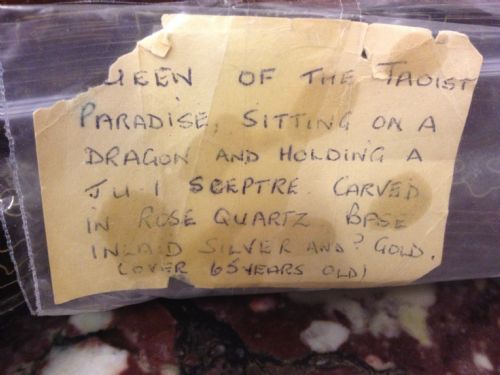 UEEN OF THE TAOIST
PARADISE, SITTING ON A
DRAGON AND HOLDING A
JU.I SCEPTRE. CARVED
IN ROSE QUARTZ BASE
INLAID SILVER AND ? GOLD.
(OVER 65 YEARS OLD)